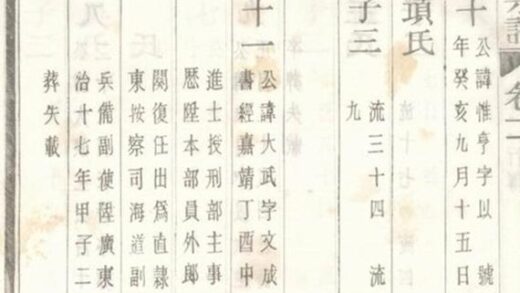 卷二
十 公諱惟亨字以 號
年癸亥九月十五日
項氏
子三 流三十四 流
九
十一 公諱大武字文成
書經嘉靖丁酉中
進士授刑部主事
歷陞本部員外郎
闋復任出為直隸
東按察司海道副
兵備副使陞廣東
治十七年甲子二
葬失載